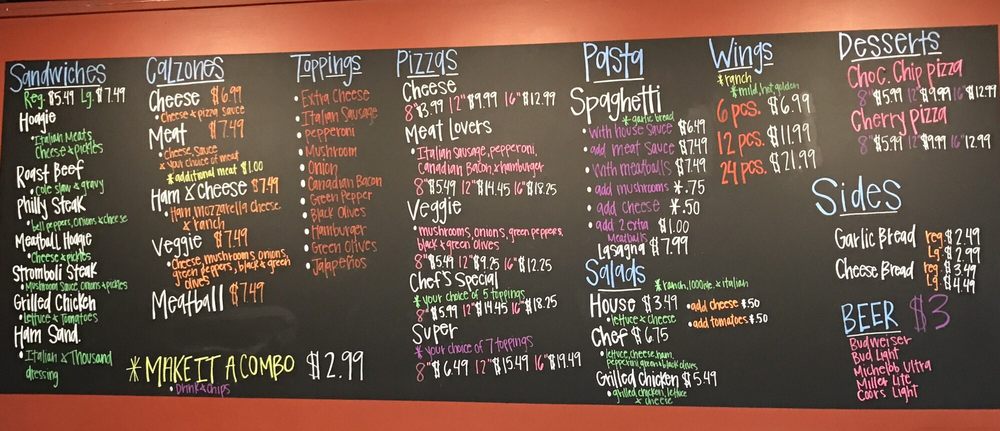 Sandwiches
Reg. $5.49 Lg. $7.49
Hoagie
• Italian Meats
Cheese & pickles
Roast Beef
• Cole slaw & gravy
Philly Steak
• bell peppers, onions & cheese
Meatball Hoagie
• Cheese & pickles
Stromboli Steak
• Mushroom Sauce Onions & pickles
Grilled Chicken
• lettuce & Tomatoes
Ham Sand.
• Italian & Thousand
dressing
Calzones
Cheese $6.99
• Cheese & pizza Sauce
Meat $7.49
• Cheese, Sauce
& your choice of meat
* additional meat $1.00
Ham & Cheese $7.49
• Ham mozzarella cheese
& ranch
Veggie $7.49
• Cheese mushrooms onions,
green peppers, black & green
olives
Meatball $7.49
* MAKE IT A COMBO $2.99
• Drink & chips
Toppings
• Extra Cheese
• Italian Sausage
• Pepperoni
• Mushroom
• Onion
• Canadian Bacon
• Green Pepper
• Black Olives
• Hamburger
• Green Olives
• Jalapeños
Pizzas
Cheese
8" $3.99 12" $9.99 16" $12.99
Meat Lovers
• Italian Sausage, pepperoni,
Canadian Bacon & hamburger
8" $5.49 12" $14.45 16" $18.25
Veggie
• mushrooms, onions, green peppers,
black & green olives
8" $5.49 12" $9.25 16" $12.25
Chef's Special
* your choice of 5 toppings
8" $5.99 12" $14.45 16" $18.25
Super
* your choice of 7 toppings
8" $6.49 12" $15.49 16" $19.49
Pasta
Spaghetti
* garlic bread
• With house Sauce $6.49
• add meat Sauce $7.49
• With meatballs $7.49
• add mushrooms *.75
• add cheese *.50
• add 2 extra $1.00
Meatballs
Lasagna $7.99
Salads
* ranch, 1000Isle, & italian
House $3.49 • add cheese $.50
• lettuce & cheese • add tomatoes $.50
Chef $6.75
• lettuce, cheese, ham,
pepperoni, green & black olives
Grilled Chicken $5.49
• grilled chicken, lettuce
& cheese
Wings
* ranch
* mild, hot, golden
6 pcs. $6.99
12 pcs. $11.99
24 pcs. $21.99
Desserts
Choc. Chip pizza
8" $5.99 12" $9.99 16" $12.99
Cherry pizza
8" $5.99 12" $9.99 16" 12.99
Sides
Garlic Bread reg. $2.49
Lg. $2.99
Cheese Bread reg. $3.49
Lg. $4.49
BEER $3
Budweiser
Bud Light
Michelob Ultra
Miller Lite
Coors Light